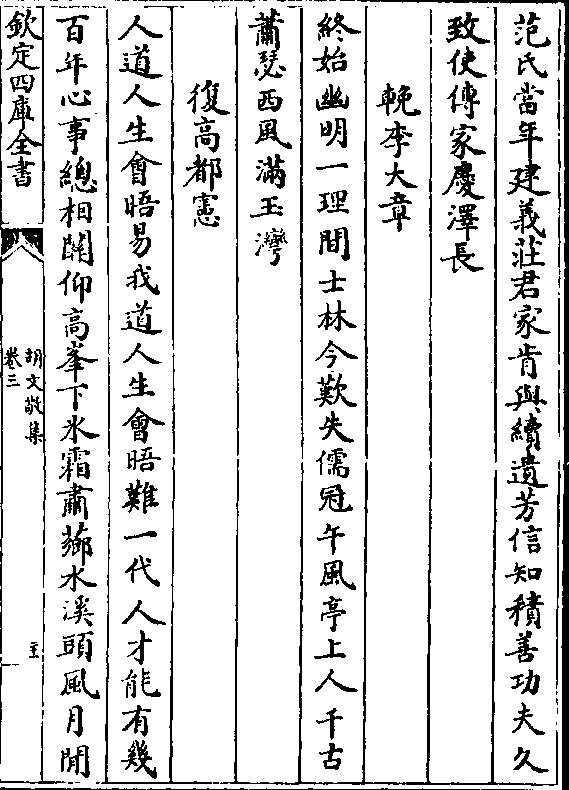 范氏當年建義莊君家肯與續遺芳信知積善功夫久
致使傳家慶澤長
輓李大章
終始幽明一理間士林今歎失儒冠午風亭上人千古
蕭瑟西風滿玉灣
復高都憲
人道人生會晤易我道人生會晤難一代人才能有幾
百年心事總相關仰高峯下氷霜肅薌水溪頭風月閒
欽定四庫全書
胡文敬集
卷三